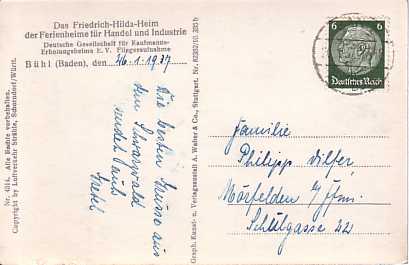 Das Friedrich-Hilda-Heim
der Ferienheime für Handel und Industrie
Deutsche Gesellschaft für Kaufmanns-
Erholungsheime E. V. Fliegeraufnahme
Bühl (Baden), den 26.1.1937
Die besten Grüsse aus
dem Schwarzwald
sendet Euch
Nr. 4514. Alle Rechte vorbehalten.
Copyright by Luftverkehr Strähle, Schorndorf/Württ.
Graph. Kunst- u. Verlagsanstalt A. Weber & Co., Stuttgart.
6 6
Deutsches Reich
Familie
Philipp Dilfer,
Mörfelden b/Ffm.
Schulgasse 22